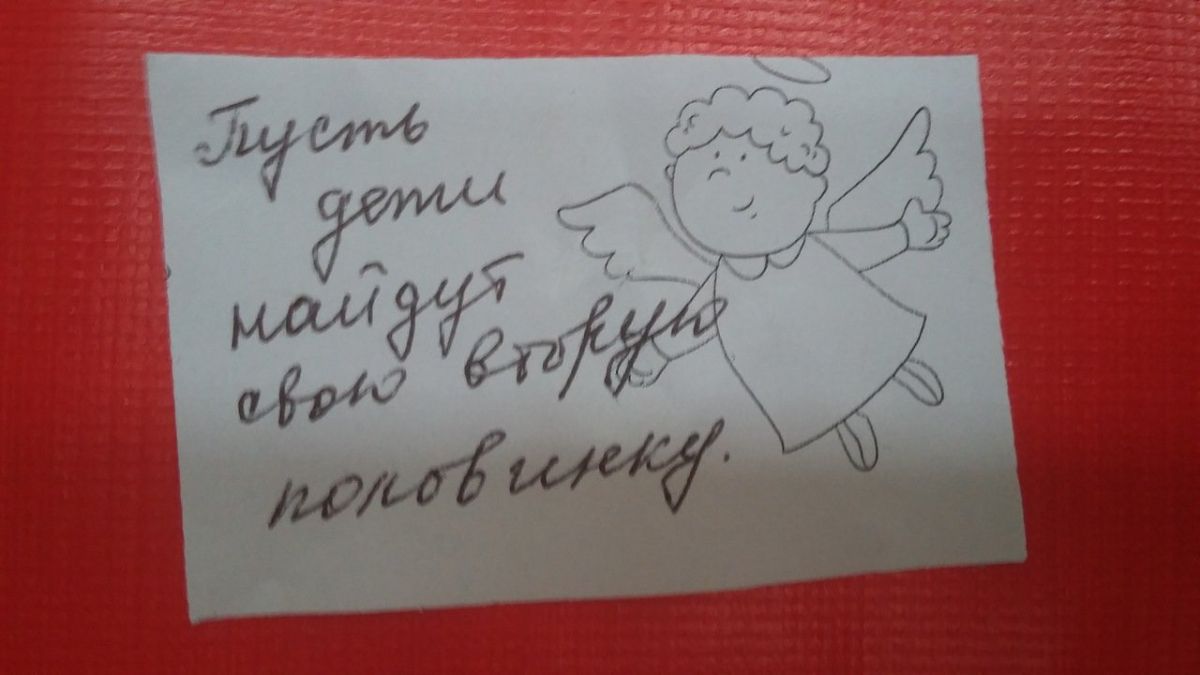 Пусть
дети
найдут
свою вторую
половинку.